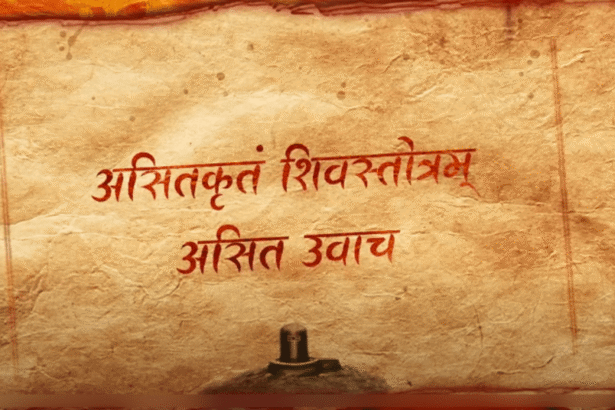 असितकृतं शिवस्तोत्रम्
असित उवाच